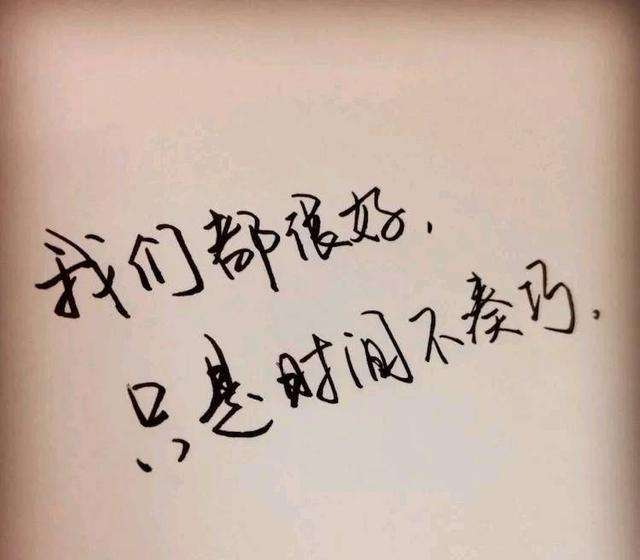 我们都很好，
只是时间不凑巧．